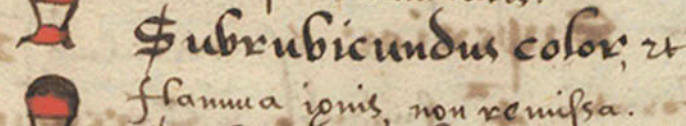 Subrubicundus color, et
flamma ignis non remissa.